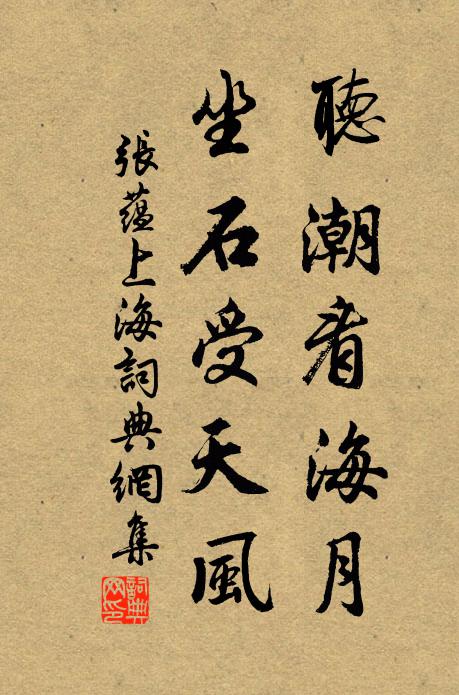 聽潮看海月
坐石受天風
張蘊上海詞典網集
詞典
网印